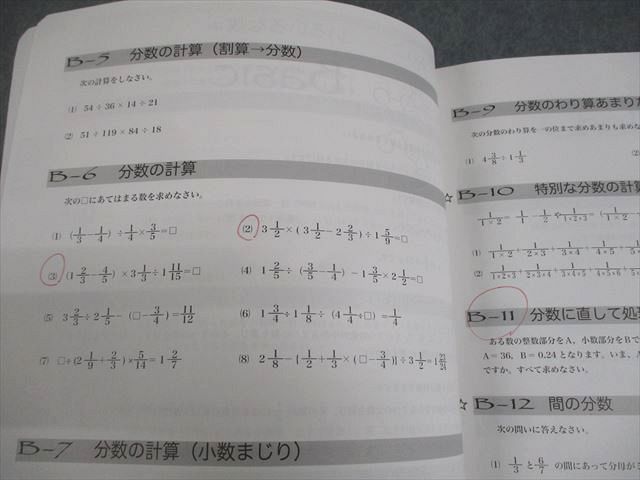 B-5 分数の計算（割算→分数）
次の計算をしなさい。
(1) 54÷36×14÷21
(2) 51÷119×84÷18
B-6 分数の計算
次の□にあてはまる数を求めなさい。
(1) (1/3－1/4) ÷1/4×3/5=□
(2) 3 1/2×( 3 1/2－2 2/3) ÷1 5/9=□
(3) (1 2/3－4/5) ×3 1/3÷1 11/15=□
(4) 1 2/5÷ (3/5－1/4) －1 3/5×2 1/2=□
(5) 3 2/3÷2 1/5－ (□－3/4) =11/12
(6) 1 3/4÷1 1/8÷ (4 1/4÷□) =1/4
(7) □÷(2 1/9+2/3) ×5/14=1 2/7
(8) 2 1/8－{1/2+1/3× (□－3/4)} ÷3 1/2=1 23/24
B-7 分数の計算（小数まじり）
B-9 分数のわり算あまり
次の分数のわり算を一の位まで求めあまりも求めな
(1) 4 3/8÷1 1/3
(2)
☆ B-10 特別な分数の計算
1/1×2 = 1/1－1/2や1/1×2×3= (1/1×2
(1) 1/1×2+1/2×3+1/3×4+1/4×5+1/5
(2) 1/1×2×3+1/2×3×4+1/3×4×5+1/4×5×6+
B-11 分数に直して処
ある数の整数部分をA、小数部分をBで
A＝36、B＝0.24となります。いま、A
ですか。すべて求めなさい。
☆ B-12 間の分数
次の問いに答えなさい。
(1) 1/3 と 6/7 の間にあって分母が